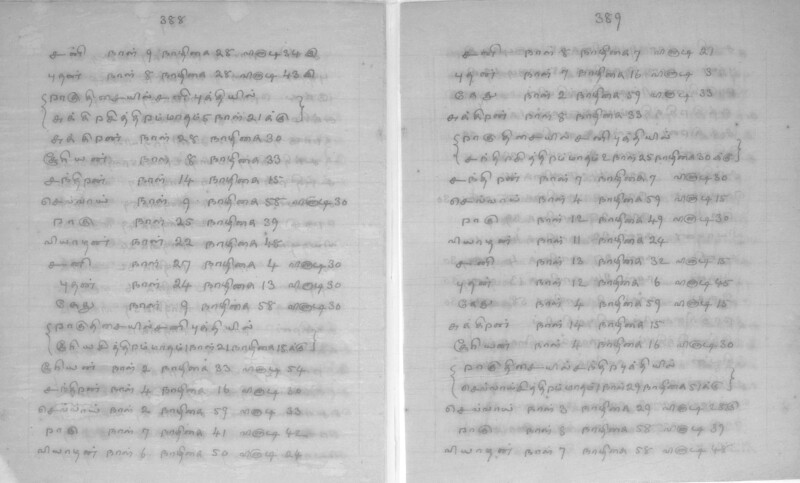 388
சனி நாள் 9 நாழிகை 28 விநாடி 34
புதன் நாள் 8 நாழிகை 28 விநாடி 43
ராகு திசையில் சனி புத்தியில்
நாள் 21க்கு
சுக்கிரன் நாள் 28 நாழிகை 30
சூரியன் நாள் 8 நாழிகை 33
சந்திரன் நாள் 14 நாழிகை 15
செவ்வாய் நாள் 9 நாழிகை 58 விநாடி 30
ராகு நாள் 25 நாழிகை 39
வியாழன் நாள் 22 நாழிகை 48
சனி நாள் 27 நாழிகை 4 விநாடி 30
புதன் நாள் 24 நாழிகை 13 விநாடி 30
கேது நாள் 9 நாழிகை 58 விநாடி 30
ராகு திசையில் சனி புத்தியில்
நாள் 21 நாழிகை 15க்கு
சூரியன் நாள் 2 நாழிகை 33 விநாடி 54
சந்திரன் நாள் 4 நாழிகை 16 விநாடி 30
செவ்வாய் நாள் 2 நாழிகை 59 விநாடி 33
ராகு நாள் 7 நாழிகை 41 விநாடி 42
வியாழன் நாள் 6 நாழிகை 50 விநாடி 24
389
சனி நாள் 8 நாழிகை 7 விநாடி 21
புதன் நாள் 7 நாழிகை 16 விநாடி 3
கேது நாள் 2 நாழிகை 59 விநாடி 33
சுக்கிரன் நாள் 8 நாழிகை 33
ராகு திசையில் சனி புத்தியில்
நாள் 25 நாழிகை 30க்கு
சந்திரன் நாள் 7 நாழிகை 7 விநாடி 30
செவ்வாய் நாள் 4 நாழிகை 59 விநாடி 15
ராகு நாள் 12 நாழிகை 49 விநாடி 30
வியாழன் நாள் 11 நாழிகை 24
சனி நாள் 13 நாழிகை 32 விநாடி 15
புதன் நாள் 12 நாழிகை 6 விநாடி 45
கேது நாள் 4 நாழிகை 59 விநாடி 15
சுக்கிரன் நாள் 14 நாழிகை 15
சூரியன் நாள் 4 நாழிகை 16 விநாடி 30
ராகு திசையில்
நாள் 29 நாழிகை 51க்கு
செவ்வாய் நாள் 3 நாழிகை 29 விநாடி
ராகு நாள் 8 நாழிகை 58 விநாடி 39
வியாழன் நாள் 7 நாழிகை 58 விநாடி 48